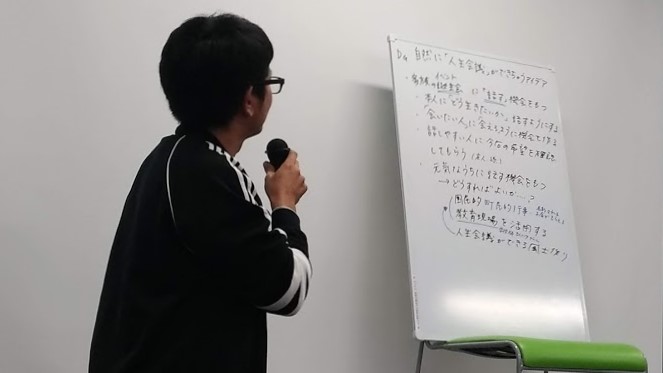 D4 自然に「人生会議」ができちゃうアイデア
イベント
・ に「話す」機会をもつ
・本人に「どう生きたいか」話すようにする
・「会いたい人」に会えるように
・話しやすい人に今後の希望を確認
してもらう
・元気なうちに話す機会をもつ
→どうすればよいか…?
国在的 町在的行事
教育現場を活用する
人生会議ができる風土づくり